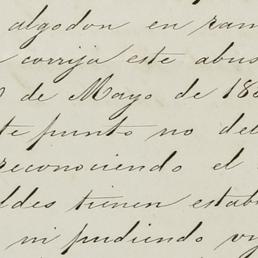 algodon en ram
corrija este abus
de Mayo de 18
te punto no de
reconociendo el
ldes tienen estab
ni pudiendo